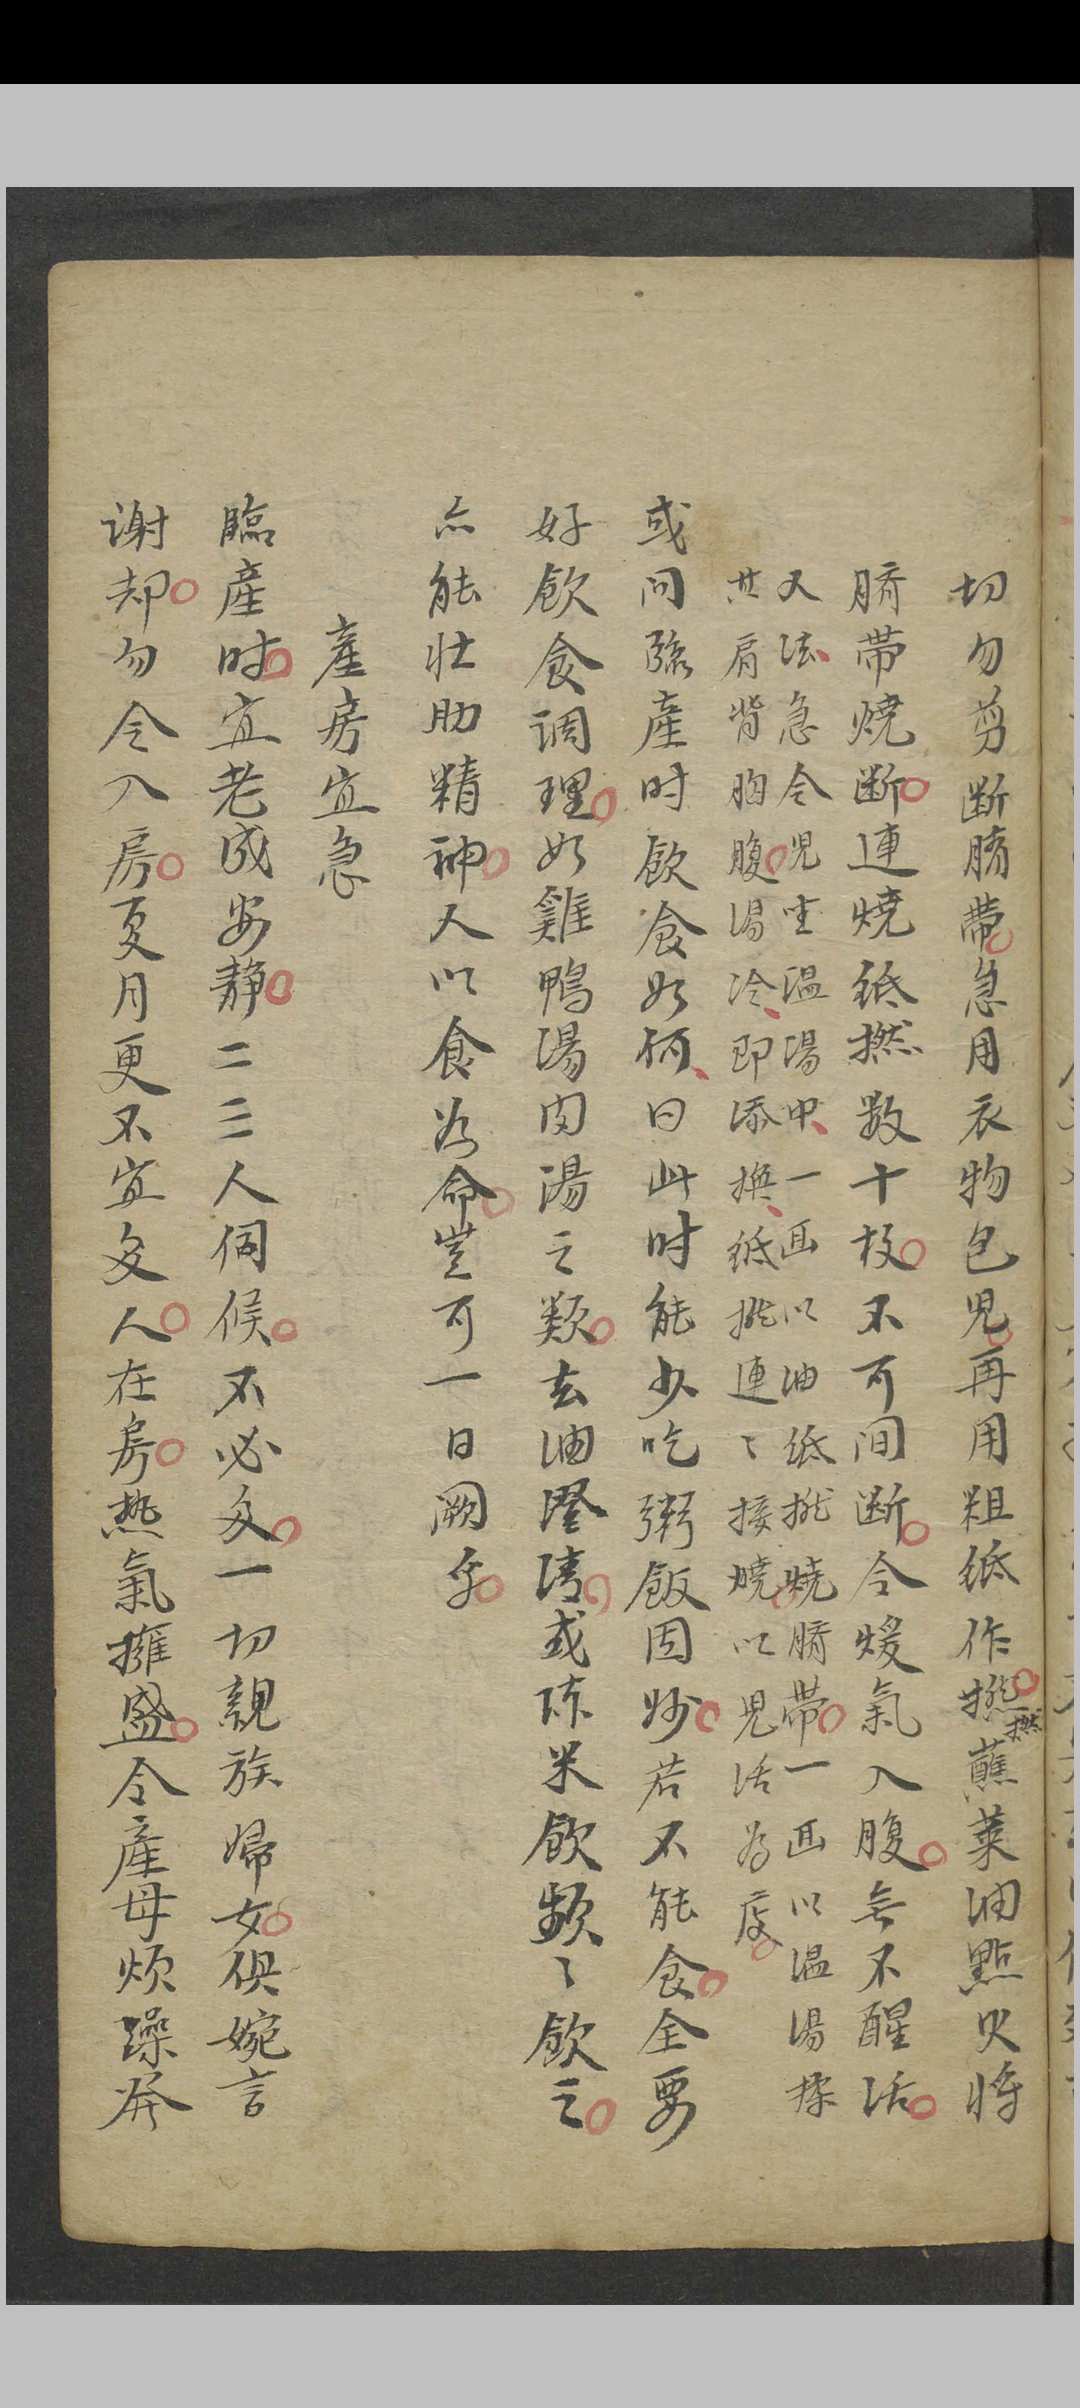 切勿剪断臍帶急用衣物包児再用粗紙作撚蘸菜油點火將
撚
臍帶燒断連燒紙撚数十枝不可间断令煖氣入腹無不醒活
又法急令児坐温湯中一面以油紙撚燒臍帶一面以温湯揉
其肩背胸腹湯冷即添換紙撚連〻接燒以児活為度
或问臨產时飲食如何曰此时能少吃粥飯固妙若不能食全要
好飲食调理如雞鴨湯肉湯之類去油澄清或陈米飲頻〻飲之
亦能壮助精神人以食为命豈可一日阙乎
產房宜急
臨產时宜老成安静二三人伺候不必多一切親族婦女俱婉言
谢却勿令入房夏月更不宜多人在房热氣擁盛令產母烦躁發